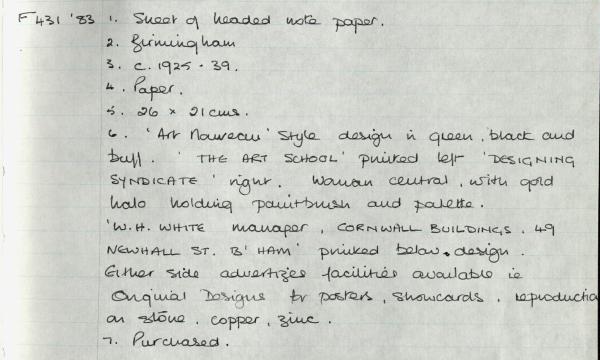 F431 '83 1. Sheet of headed note paper.
2. Birmingham
3. c. 1925 - 39.
4. Paper.
5. 26 x 21 cms.
6. 'Art Nouveau' style design in green, black and
buff. 'THE ART SCHOOL' printed left 'DESIGNING
SYNDICATE' right. Woman central, with gold
halo holding paintbrush and palette.
'W.H. WHITE manager, CORNWALL BUILDINGS. 49
NEWHALL ST. B'HAM' printed below design.
Either side advertizes facilities available ie
Original Designs for posters, showcards, reproductio
on stone, copper, zinc.
7. Purchased.